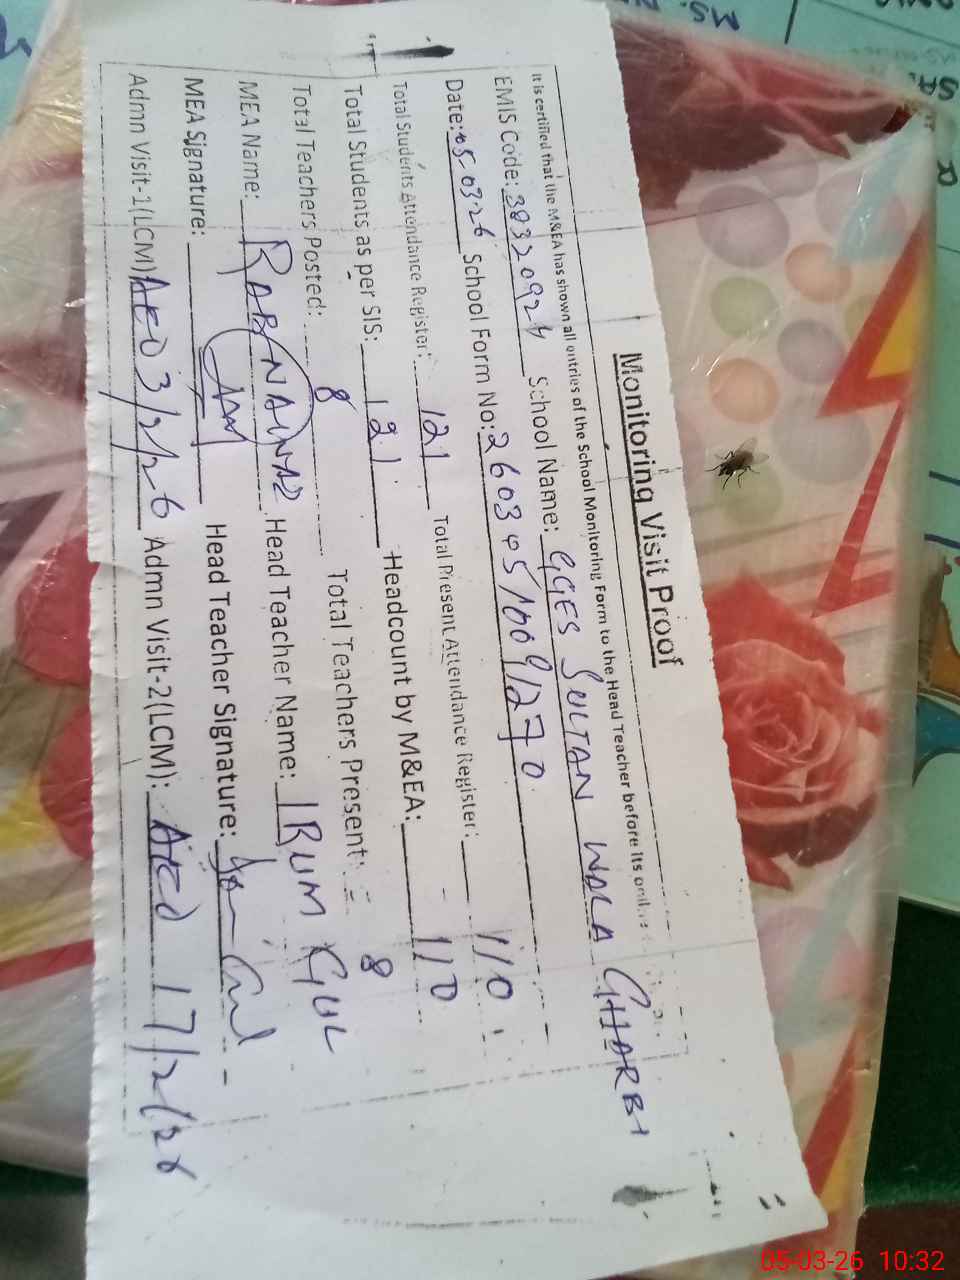 Monitoring Visit Proof
It is certified that the M&EA has shown all entries of the School Monitoring Form to the Head Teacher before its
EMIS Code: 38320924 School Name: GGES SULTAN WALA GHARBI
Date: 05-03-26 School Form No: 260305/1009/270
Total Students Attendance Register: 121 Total Present Attendance Register: 110
Total Students as per SIS: 121 Headcount by M&EA: 110
Total Teachers Posted: 8 Total Teachers Present: 8
MEA Name: Head Teacher Name: IRUM GUL
MEA Signature: Head Teacher Signature:
Admn Visit-1(LCM) AEO 3/2/26 Admn Visit-2(LCM): AEO 17/2/26
MS.
05-03-26 10:32